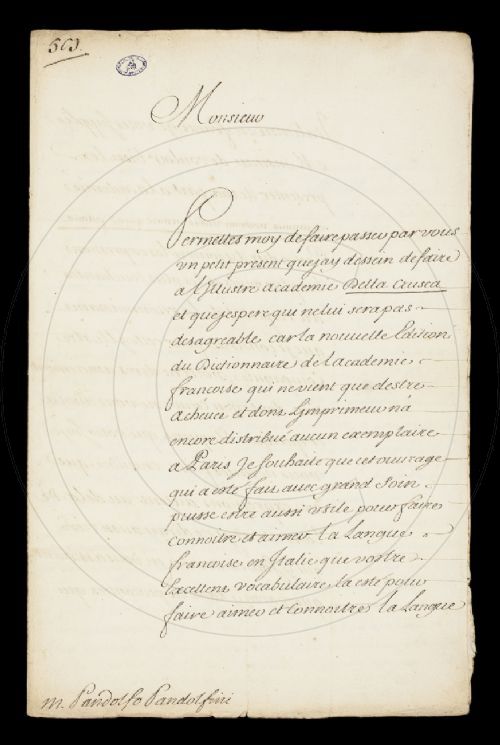 563.
Monsieur
Permettes moy de faire passer par vous
vn petit présent que jay dessein de faire
a l'Illustre academie Della Crusca
et que jespere qui ne lui sera pas
desagreable car la nouvelle Edition
du Dictionnaire de l'academie
françoise qui ne vient que destre
acheuée et dont l'imprimeur n'a
encore distribué aucun exemplaire
a Paris Je souhaite que cet ouvrage
qui a esté fait avec grand soin
puisse estre aussi vtile pour faire
connoitre et aimer la Langue
françoise en Italie que vostre
Excellent vocabulaire la esté pour
faire aimer et connoitre la Langue
m. Pandolfo Pandolfini